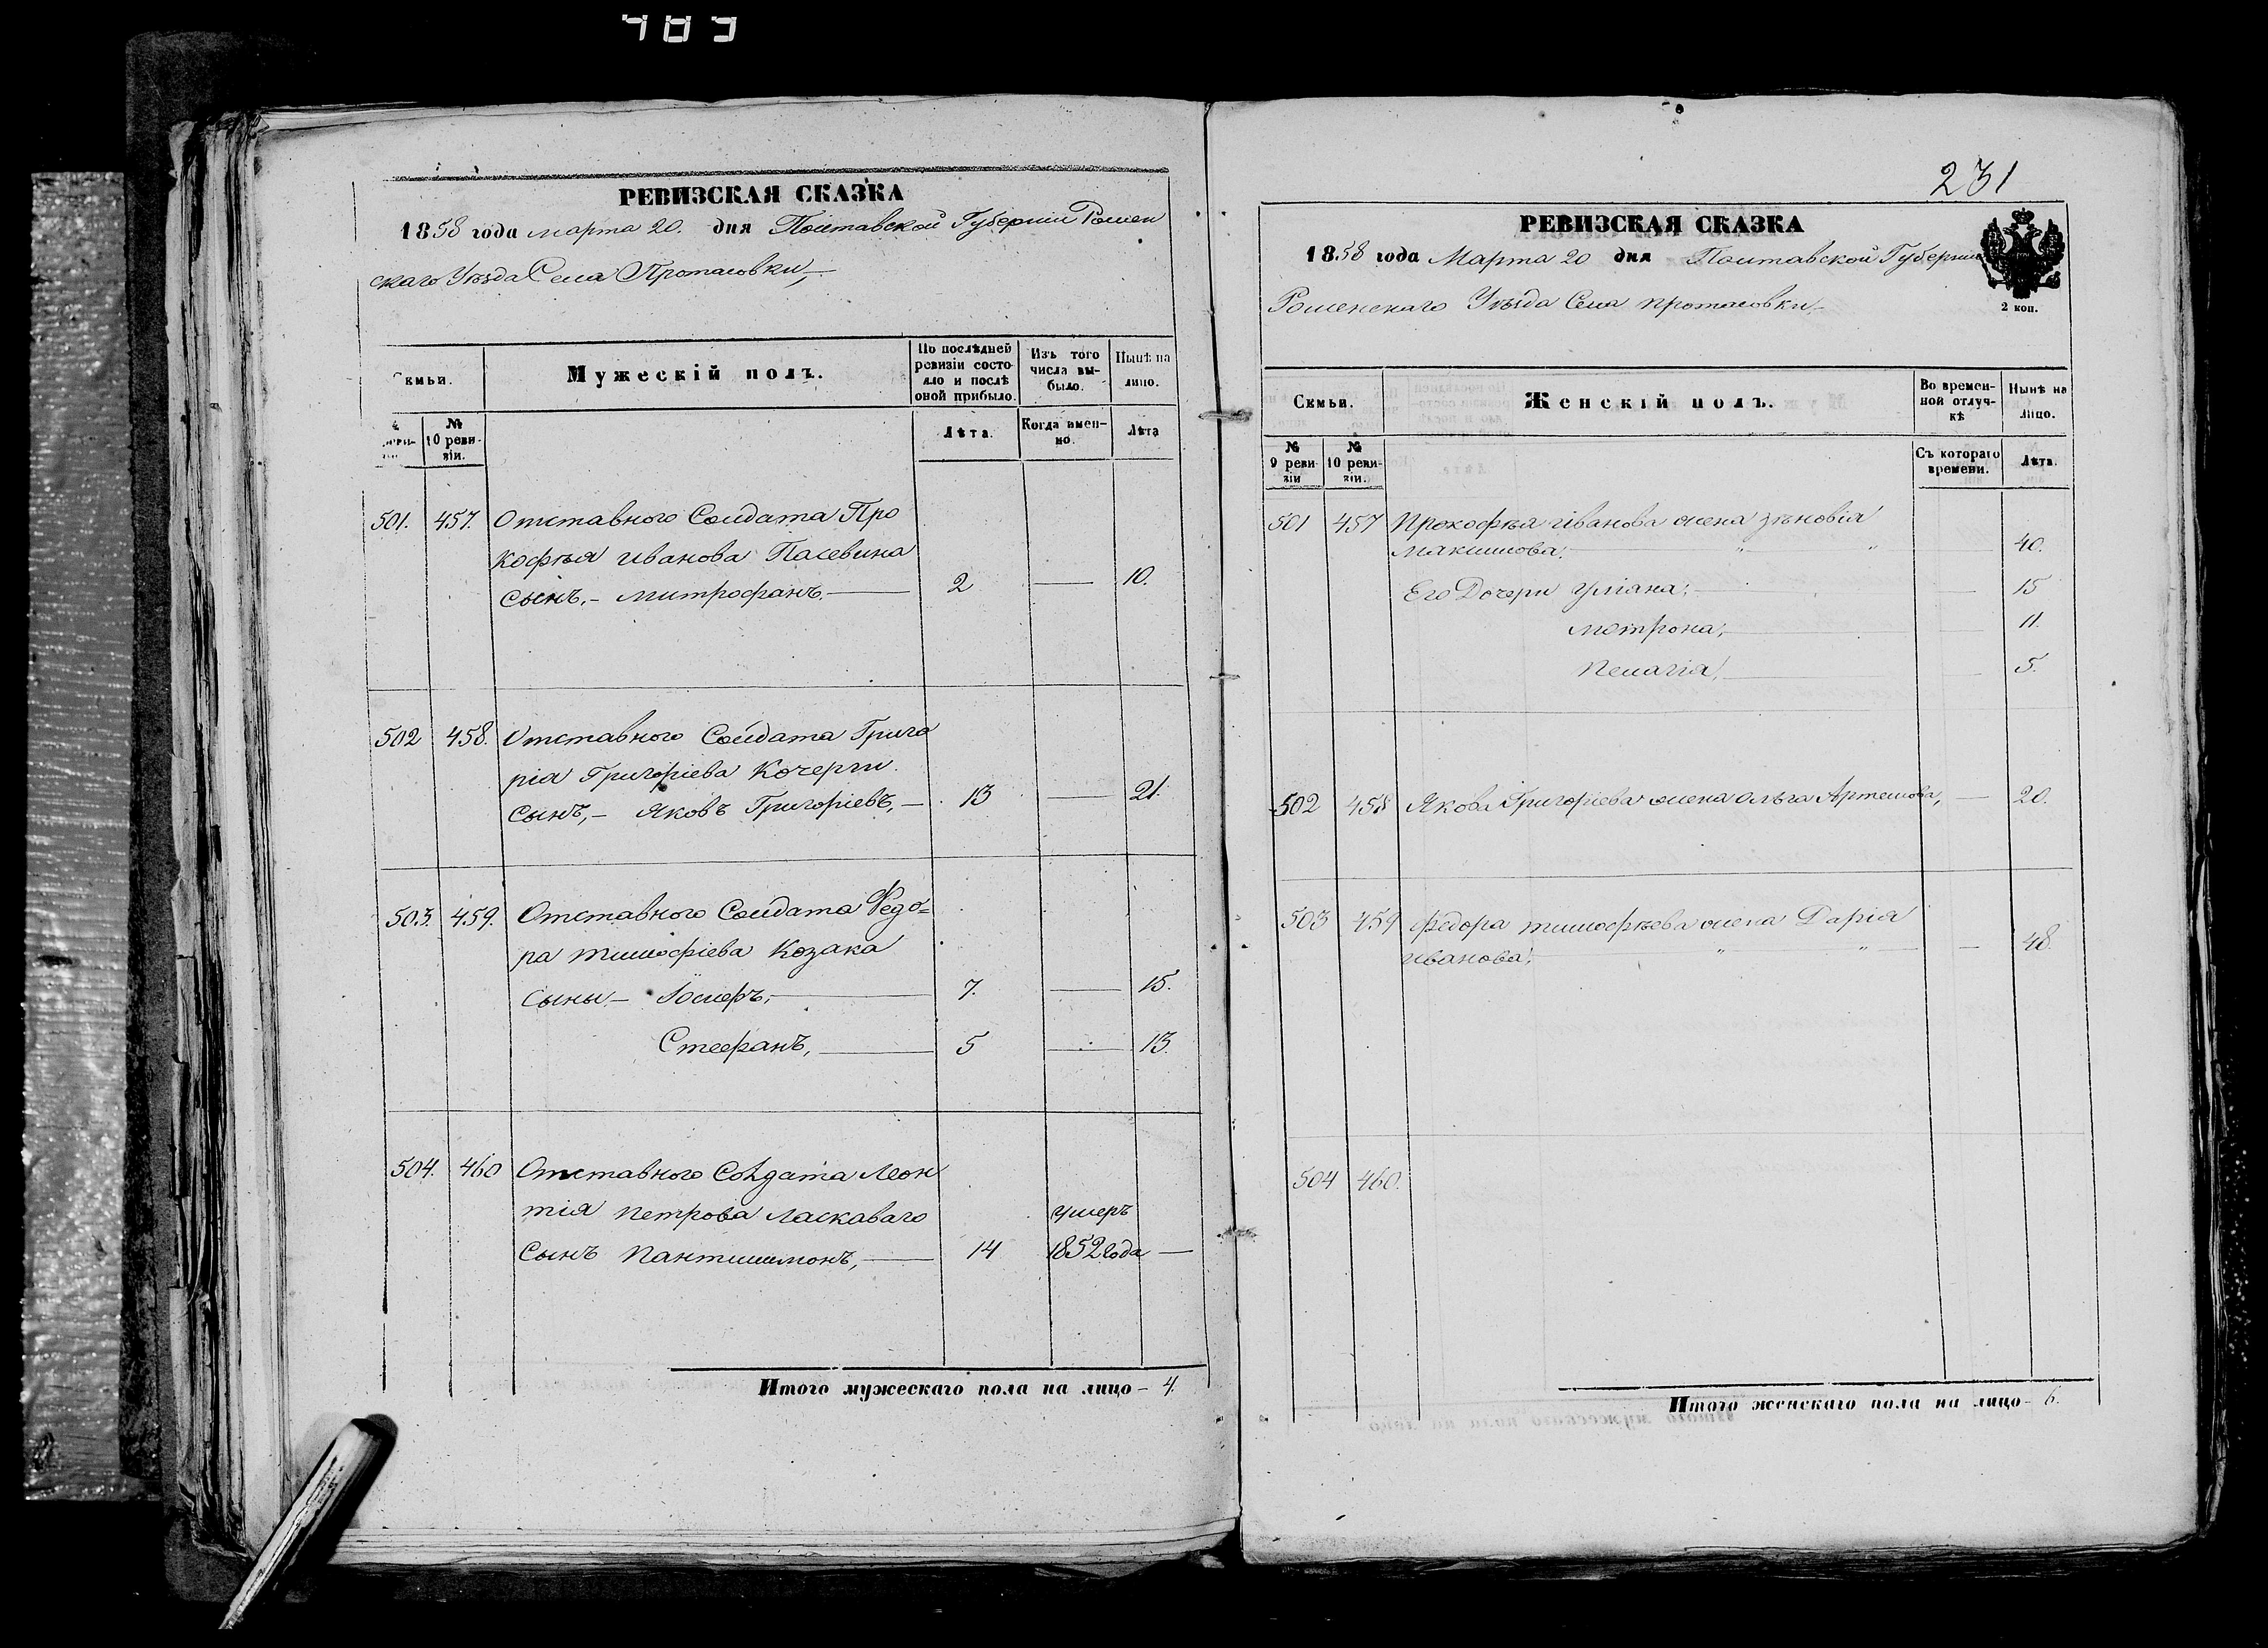 РЕВИЗСКАЯ СКАЗКА
1858 года марта 20. дня Полтавской Губернии Ромен
скаго Уѣзда Села Протасовки,
Мужескій полъ.
По послѣдней ревизіи состояло и послѣ оной прибыло.
Изъ того числа выбыло.
Нынѣ на лицо.
№ 10 ревизіи.
Лѣта.
Когда именно.
Лѣта
501. 457. Отставного Солдата Про
кофѣя иванова Пасевина
Сынъ,- митрофанъ.- 2 — 10.
502 458. Отставного Солдата Григо
рія Григоріева Кочерги
Сынъ,- Яковъ Григоріевъ,- 13 — 21.
503. 459. Отставного Солдата Ѳедо=
ра тимофіева Козака
Сыны- Іосифъ, 7. — 15.
Стефанъ, 5 — 13.
504. 460 Отставного Солдата Леон
тія петрова ласкаваго
умеръ
Сынъ пантилимонъ, 14 1852 года —
Итого мужескаго пола на лицо- 4.
231
РЕВИЗСКАЯ СКАЗКА
1858 года Марта 20 дня Полтавской Губерніи
Роменскаго Уѣзда Села протасовки,
2 коп.
Семьи.
Женскій полъ.
Во временной отлучкѣ
Нынѣ на лицо.
№ 9 ревизіи
№ 10 ревизіи.
Съ котораго времени.
Лѣта.
501 457 Прокофѣя иванова жена зѣновія
максимова, " " 40.
Его Дочери уліана, — 15
мотрона, — 11.
пелагія, — 5.
502 458 Якова Григоріева жена Ольга Артемова, — 20.
503 459 федора тимофѣева жена Дарія
иванова, " " — 48.
504 460.
Итого женскаго пола на лицо- 6.